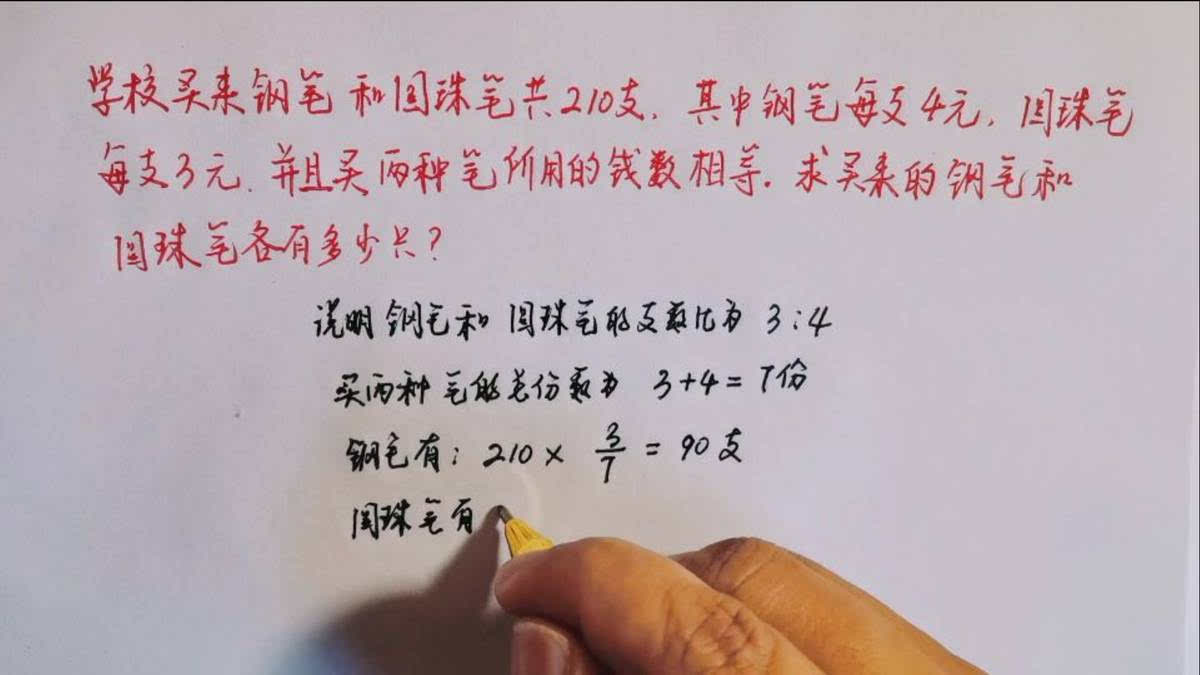 学校买来钢笔和圆珠笔共210支, 其中钢笔每支4元, 圆珠笔
每支3元. 并且买两种笔所用的钱数相等. 求买来的钢笔和
圆珠笔各有多少只?
说明钢笔和圆珠笔的支数比为 3:4
买两种笔的总份数为 3+4=7份
钢笔有: 210 × 3/7 = 90支
圆珠笔有